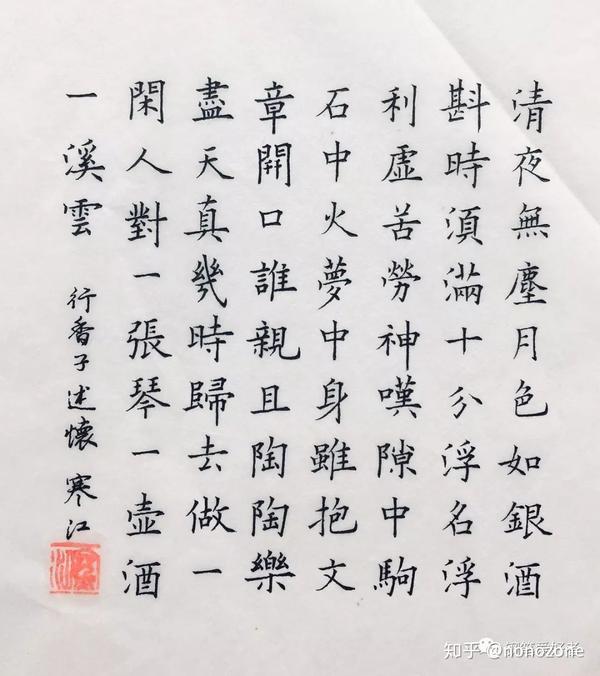 清夜無塵月色如銀酒
斟時須滿十分浮名浮
利虛苦勞神嘆隙中駒
石中火夢中身雖抱文
章開口誰親且陶陶樂
盡天真幾時歸去做一
閑人對一張琴一壺酒
一溪雲
行香子述懷 寒江
知乎 @nonozone